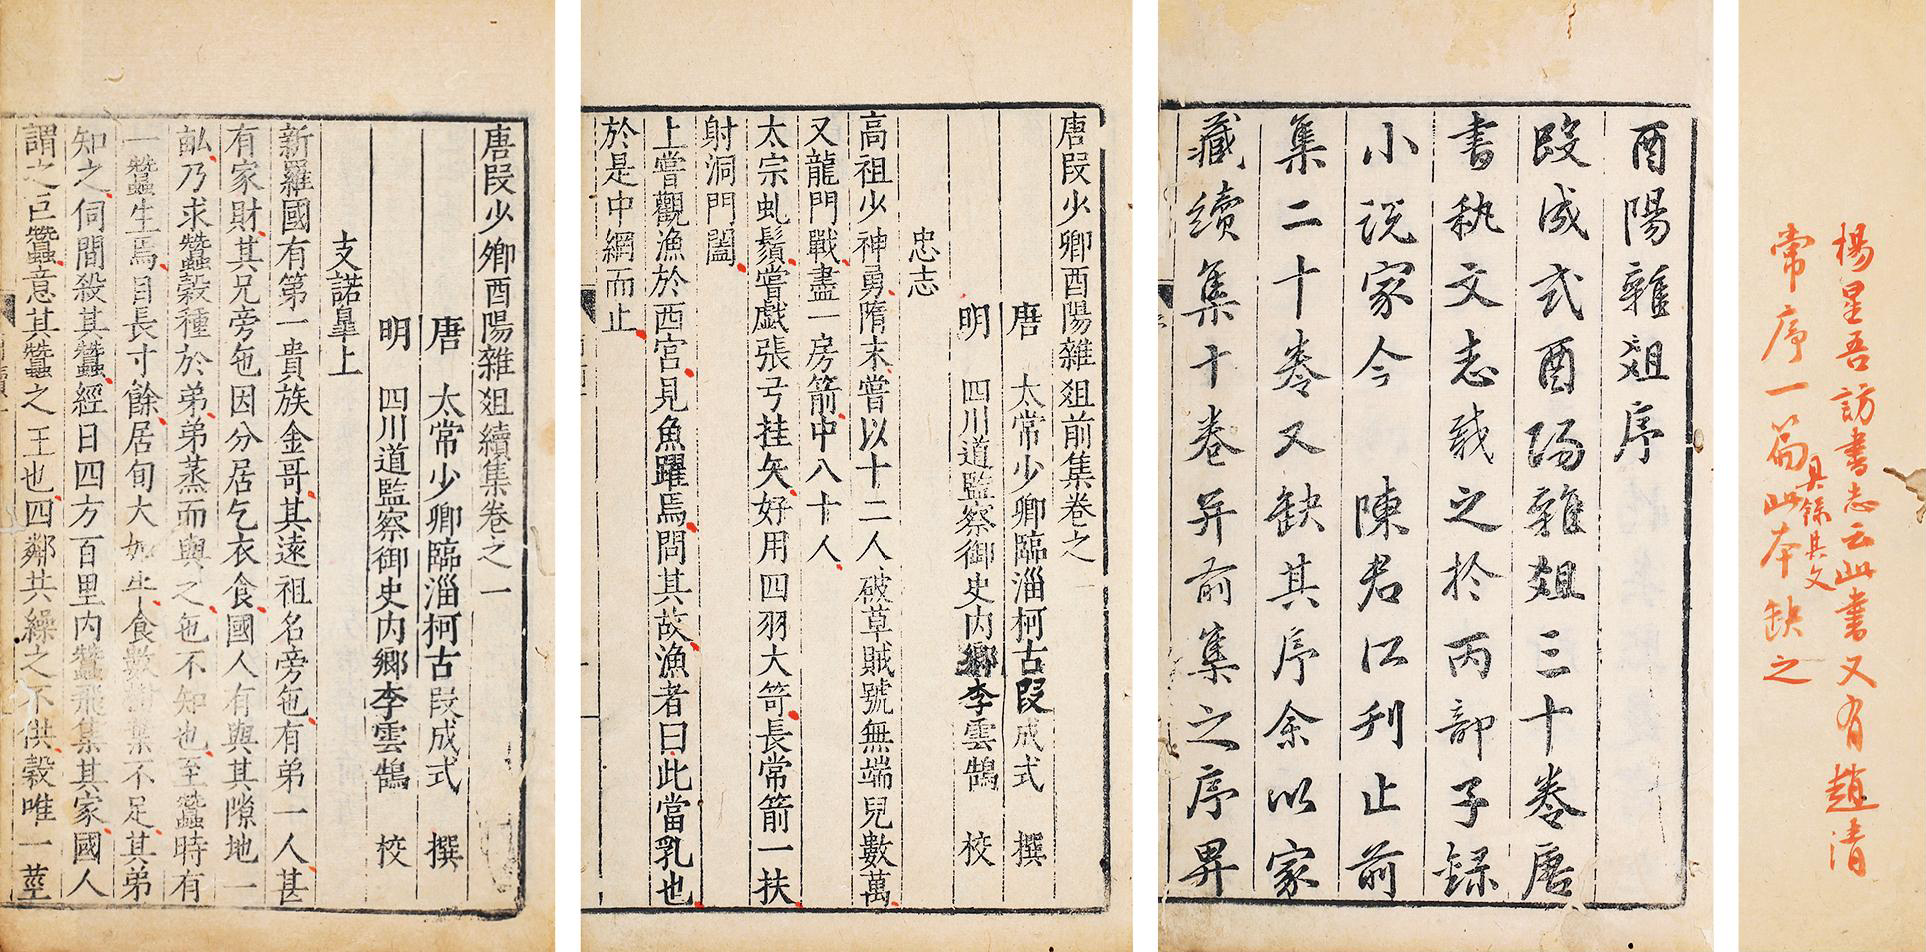 楊星吾訪書志云此書又有趙清
常序一篇具錄其文此本缺之
酉陽雜俎序
段成式酉陽雜俎三十卷唐
書執文志載之於丙部子録
小説家今 陳君江刋止前
集二十卷又缺其序余以家
藏續集十卷并前集之序畀
唐段少卿酉陽雜俎前集卷之一
唐 太常少卿臨淄柯古段成式 撰
明 四川道監察御史内鄉李雲鵠 校
忠志
高祖少神勇隋末嘗以十二人破草賊號無端兒數萬
又龍門戰盡一房箭中八十人
太宗虬鬚嘗戲張弓挂矢好用四羽大笴長常箭一扶
射洞門闔
上嘗觀漁於西宮見魚躍焉問其故漁者曰此當乳也
於是中網而止
唐段少卿酉陽雜俎續集卷之一
唐 太常少卿臨淄柯古段成式 撰
明 四川道監察御史内鄉李雲鵠 校
支諾皐上
新羅國有第一貴族金哥其遠祖名旁㐌有弟一人甚
有家財其兄旁㐌因分居乞衣食國人有與其隙地一
畝乃求蠶穀種於弟弟蒸而與之㐌不知也至蠶時有
一蠶生焉目長寸餘居旬大如牛食數樹葉不足其弟
知之伺間殺其蠶經日四方百里内蠶飛集其家國人
謂之巨蠶意其蠶之王也四鄰共繰之不供穀唯一莖